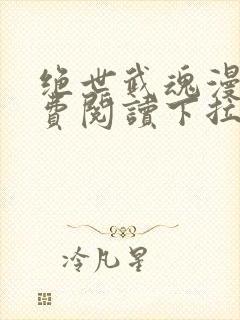 绝世武魂漫
费阅读下拉
冷凡星